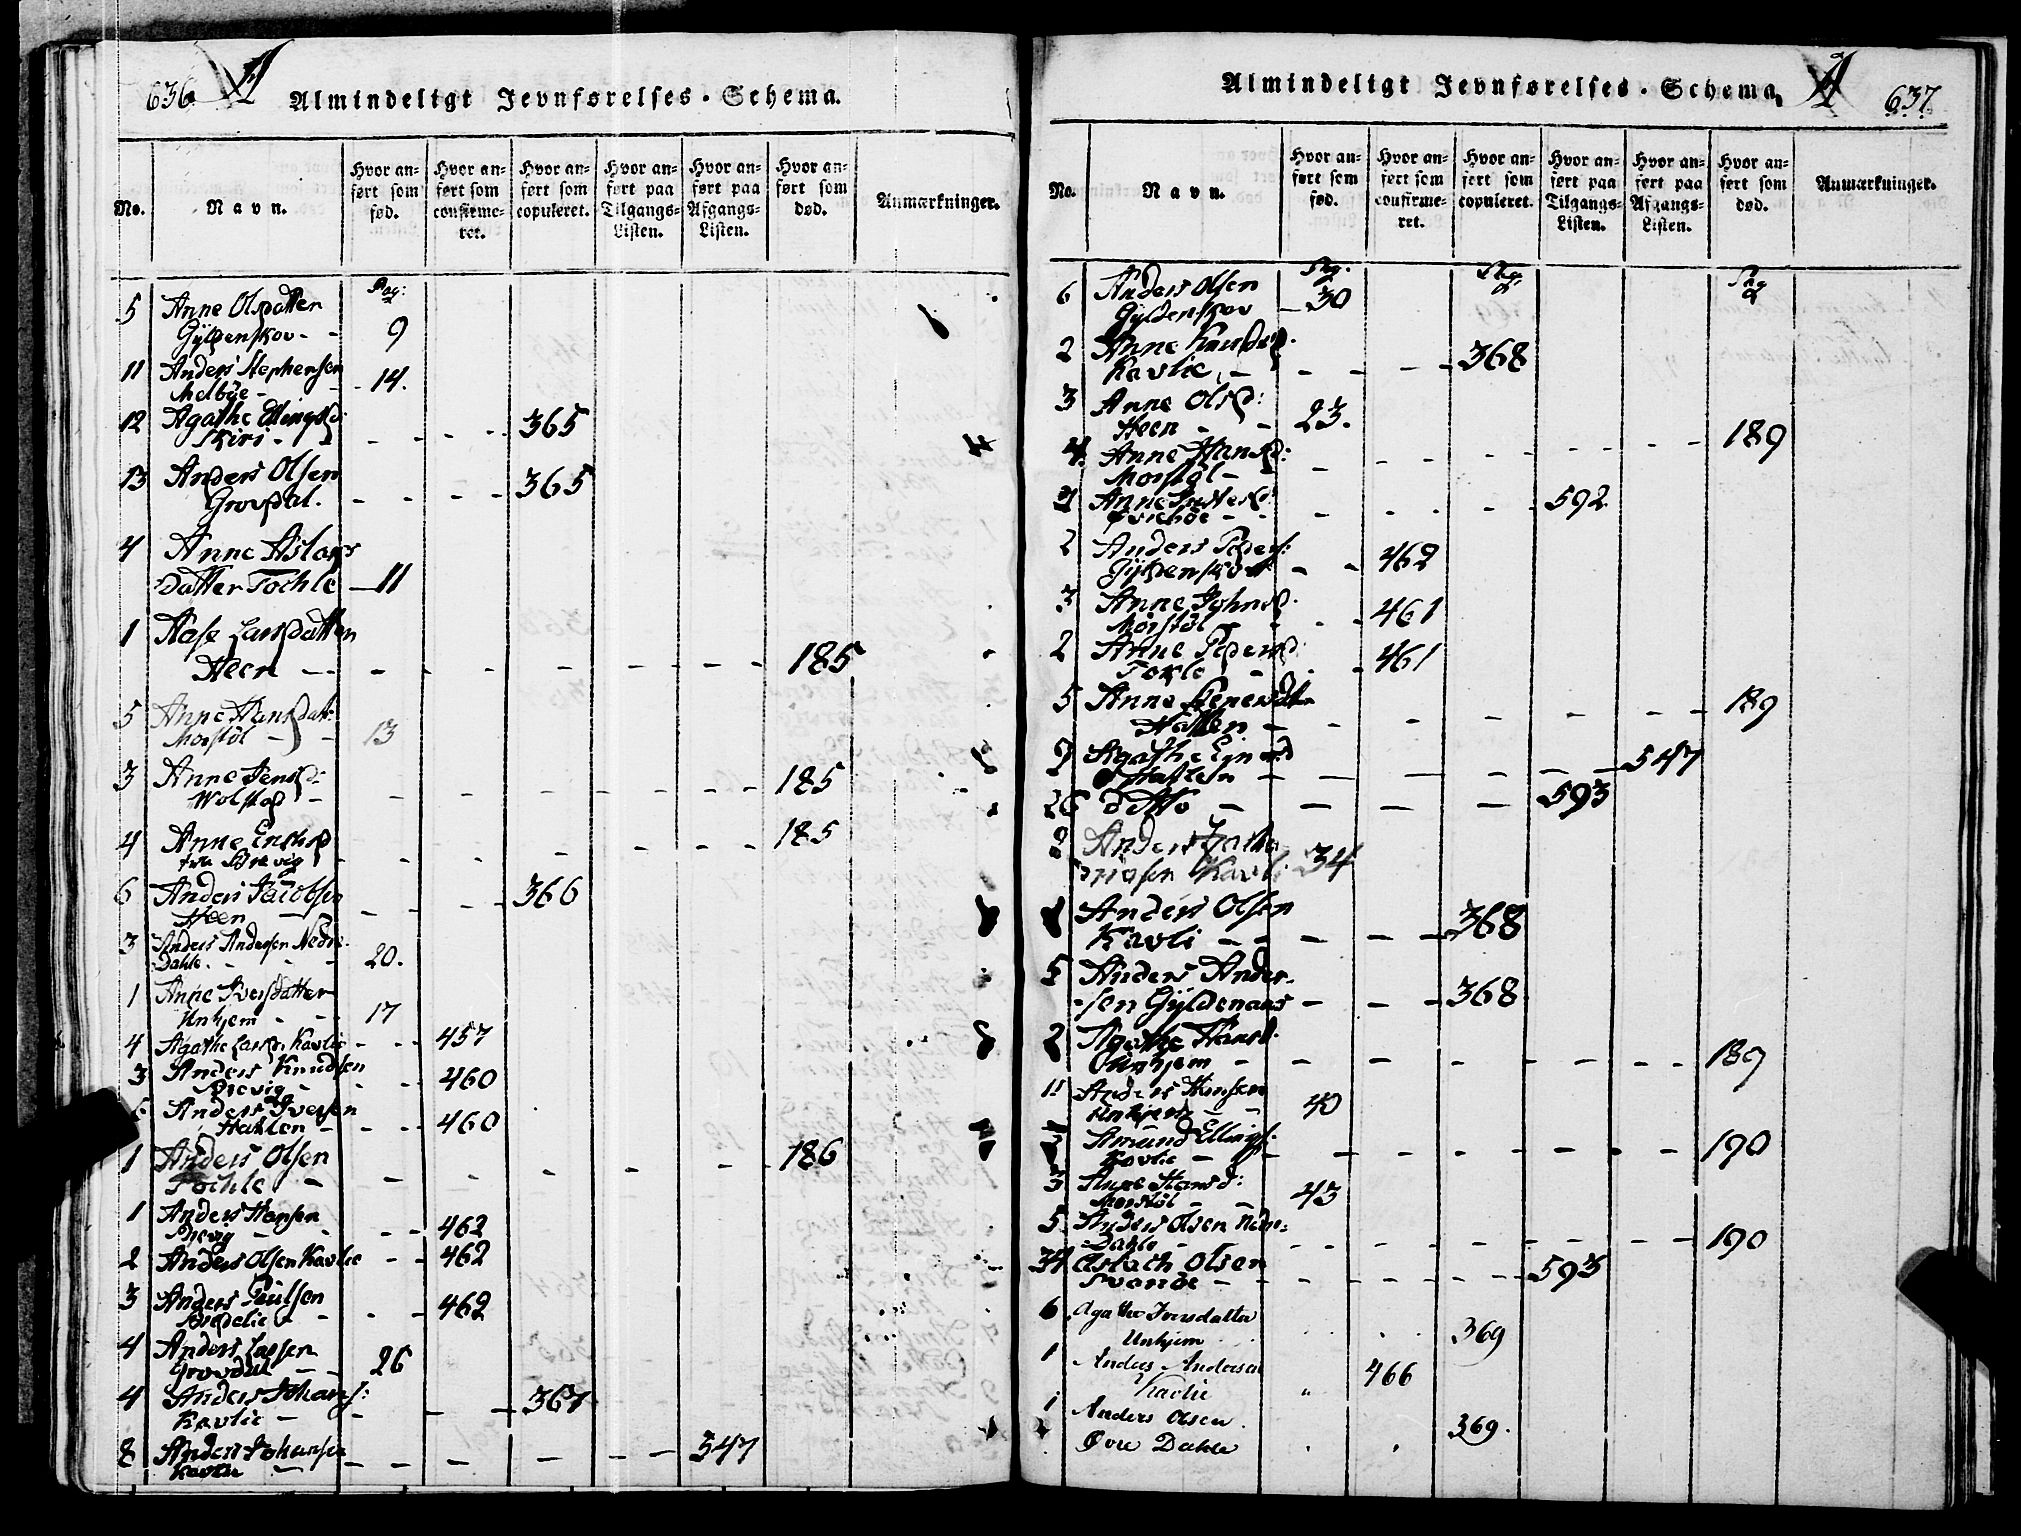 636 A Almindeligt Jevnførelses-Schema.
No. Navn. Hvor anført som fød. Hvor anført som confirmeret. Hvor anført som copuleret. Hvor anført paa Tilgangs-Listen. Hvor anført paa Afgangs-Listen. Hvor anført som død. Anmærkninger.
Pag:
5 Anne Olsdatter
Gyldenskov - - 9
11 Anders Stephensen
Melbøe - - 14.
12 Agathe Ellingsd:
Skiri - - - - 365
13 Anders Olsen
Grovdal. - - - - 365
4 Anne Aslags
Datter Tochle - 11
1 Aase Larsdatter
Heen - - - - - - - - 185
5 Anne Hansdatt:
Morstøl - - 13
3 Anne Jensd:
Wolstad - - - - - - - - 185
4 Anne
fra Brevig - - - - - - - 185
6 Anders Jacobsen
Heen - - - - 366
3 Anders Andersen Nedre
Dahle. - - - 20.
1 Anne Iversdatter
Unhjem - - - 17
4 Agathe Larsd. Kavlie - - - 457
3 Anders Knudsen
Brevig - - - 460
6 Anders Iversen
Hatlen - - - 460
1 Anders Olsen
Tochle - - - - - - - 186
1 Anders Hansen
Brevig - - - - 462
2 Anders Olsen Kavlie - - 462
3 Anders Poulsen
Bredelie - - - - 462
4 Anders Larsen
Grovdal - - 26
4 Anders Johans:
Kavlie - - - - 367
8 Anders Johansen
Kavlie - - - - - - - 547
Almindeligt Jevnførelses-Schema. A 637
No. Navn. Hvor anført som fød. Hvor anført som confirmeret. Hvor anført som copuleret. Hvor anført paa Tilgangs-Listen. Hvor anført paa Afgangs-Listen. Hvor anført som død. Anmærkninger.
Pag. Pag. Pag
6 Anders Olsen
Gyldenskov - 30
2 Anne Knudsd.
Kavlie. - - - - - 368
3 Anne Olsd:
Heen - - 23.
4. Anne Hansd:
Morstøl - - - - - - - - 189
Anne
- - - - - 592.
2 Anders Peders:
Gyldenskov - - 462
3 Anne Johnsd.
Morstøl - - - 461
2 Anne Pedersd
Tokle - - 461
5 Anne
Hatlen - - - - - - - 189
Agathe
Hatlen - - - - - - 547
26 ditto - - - - 593
Anders
Kavli 34
Anders Olsen
Kavli - - - - - 368
5 Anders Ander-
sen Gyldenaas - - - 368
2 Agathe Hansd.
Unhjem - - - - - - - 189
11 Anders Hansen
Unhjem - - 40
Amund Ellings:
Kavlie - - - - - - - 190
3 Anne Hansd:
Morstøl - - 43
5 Anders Olsen Nedre
Dahle - - - - - - - 190
34 Aslach Olsen
Svanøe - - - - - - 593
6 Agathe Iversdatter
Unhjem . . . 369
1 Anders Andersen
Kavlie " 466
1 Anders Olsen.
Øvre Dahle . . 369.